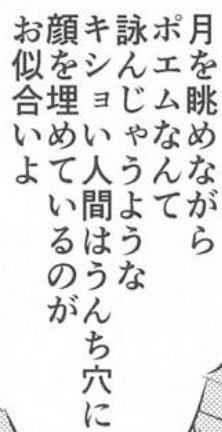 月を眺めながら
ポエムなんて
詠んじゃうような
キショい人間はうんち穴に
顔を埋めているのが
お似合いよ